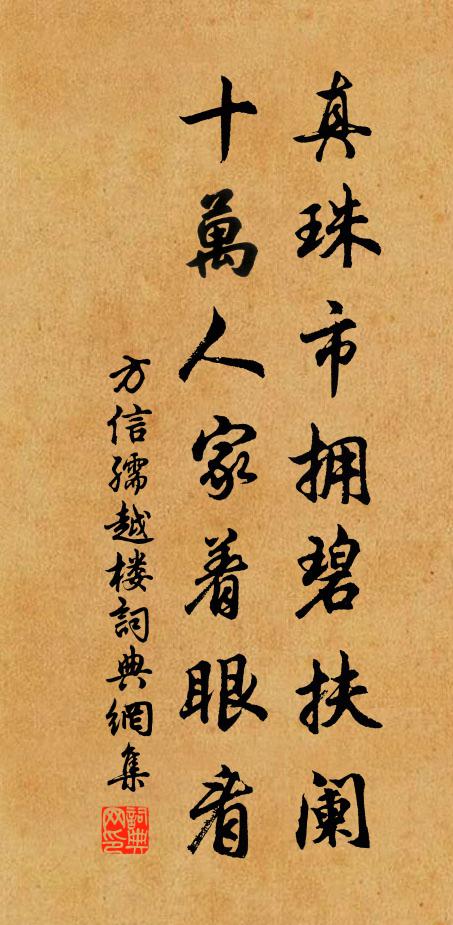 真珠市拥碧扶阑
十萬人家着眼看
方信孺越楼詞典網集
詞典网印